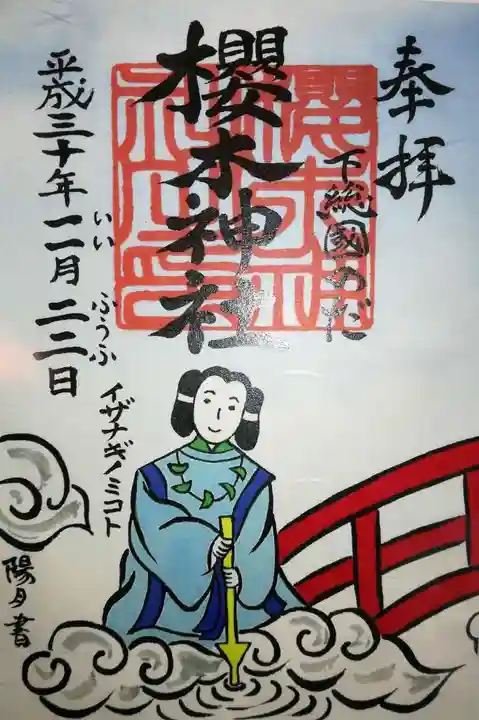 奉拝
下総國のだ
櫻木神社
平成三十年十一月二二日
いい
ふうふ
イザナギノミコト
陽夕書